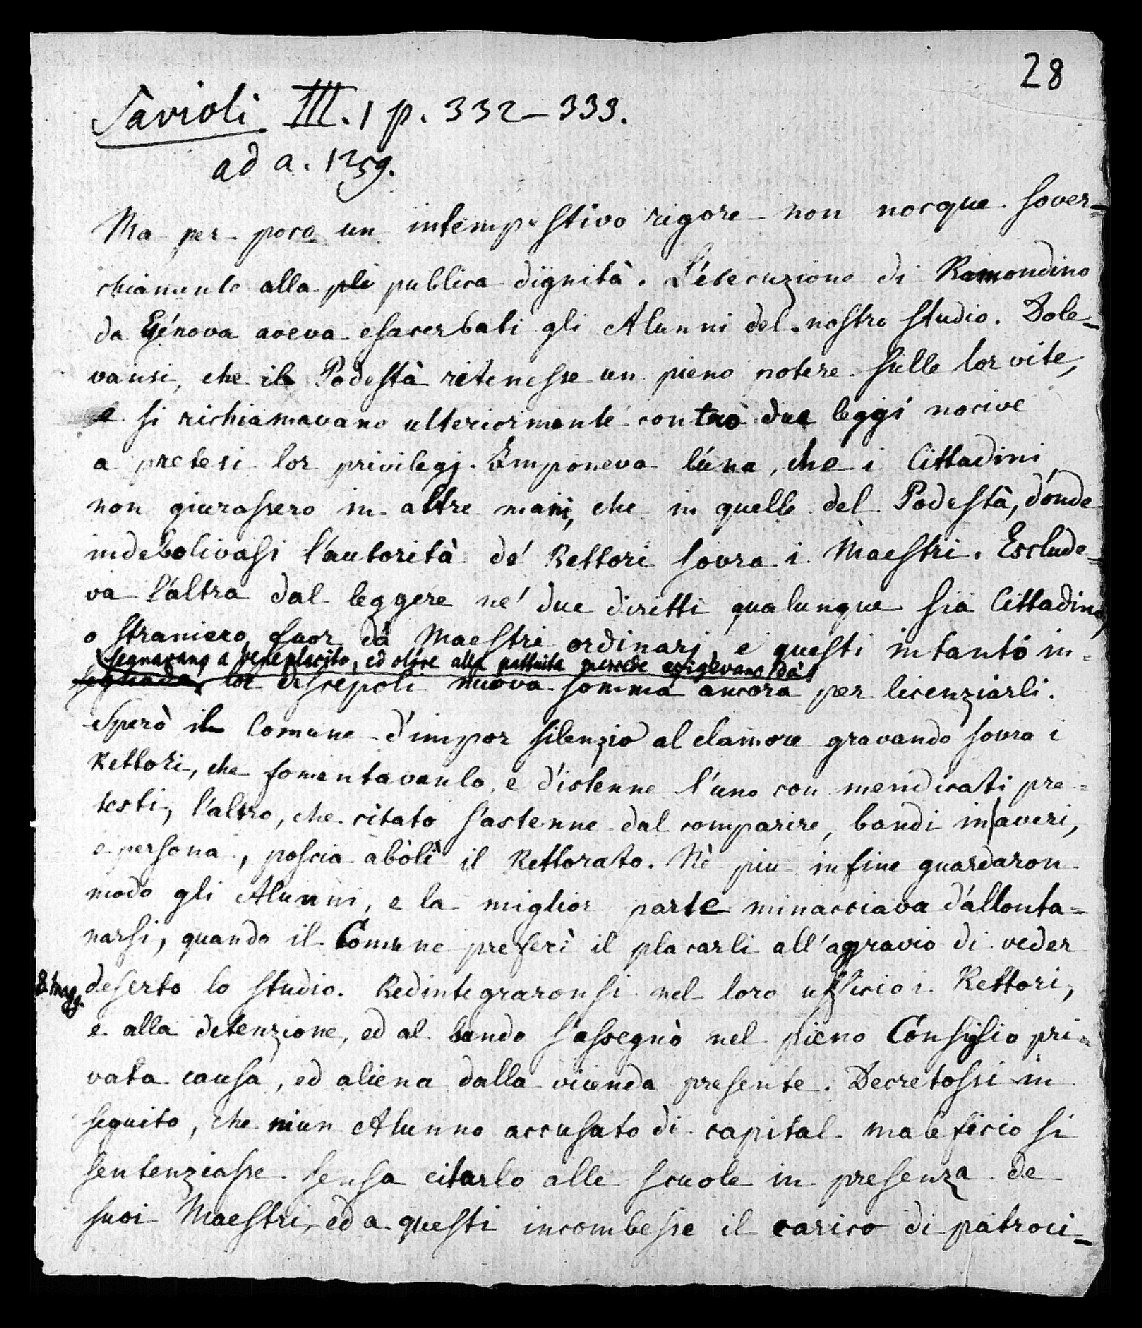 28
Savioli III. 1 p. 332-333.
ad a. 1259.
Ma per poco un intempestivo rigore non nocque sover=
chiamente alla publica dignità. L'esecuzione di Ramondino
da Génova aveva esacerbati gli Alunni del nostro studio. Dole=
vansi, che il Podestà ritenesse un pieno potere sulle lor vite,
e si richiamavano ulteriormente contro due leggi nocive
a pretesi lor privilegj. Imponeva l'una, che i Cittadini
non giurassero in altre mani, che in quelle del Podestà, donde
indebolivasi l'autorità de' Rettori sovra i Maestri. Esclude=
va l'altra dal leggere ne' due diritti qualunque sia Cittadino,
o straniero fuor da Maestri ordinarj e questi intanto in=
segnavano a beneplacito, ed oltre alla pattuita mercede esigevano da'
lor discepoli nuova somma ancora per licenziarli.
Sperò il Comune d'impor silenzio al clamore gravando sovra i
Rettori, che fomentavanlo, e distenne l'uno con mendicati pre=
testi, l'altro, che citato s'astenne dal comparire, bandì in averi,
e persona, poscia abolì il Rettorato. Nè più infine guardaron
modo gli Alunni, e la miglior parte minacciava d'allonta=
narsi, quando il Comune preferì il placarli all'agravio di veder
8. magg.
deserto lo studio. Redintegraronsi nel loro ufficio i Rettori,
e alla detenzione, ed al bando s'assegnò nel pieno Consiglio pri=
vata causa, ed aliena dalla vicenda presente. Decretossi in
seguito, che niun Alunno accusato di capital maleficio si
sentenziasse sensa citarlo alle scuole in presenza de
suoi Maestri, ed a questi incombesse il carico di patroci=